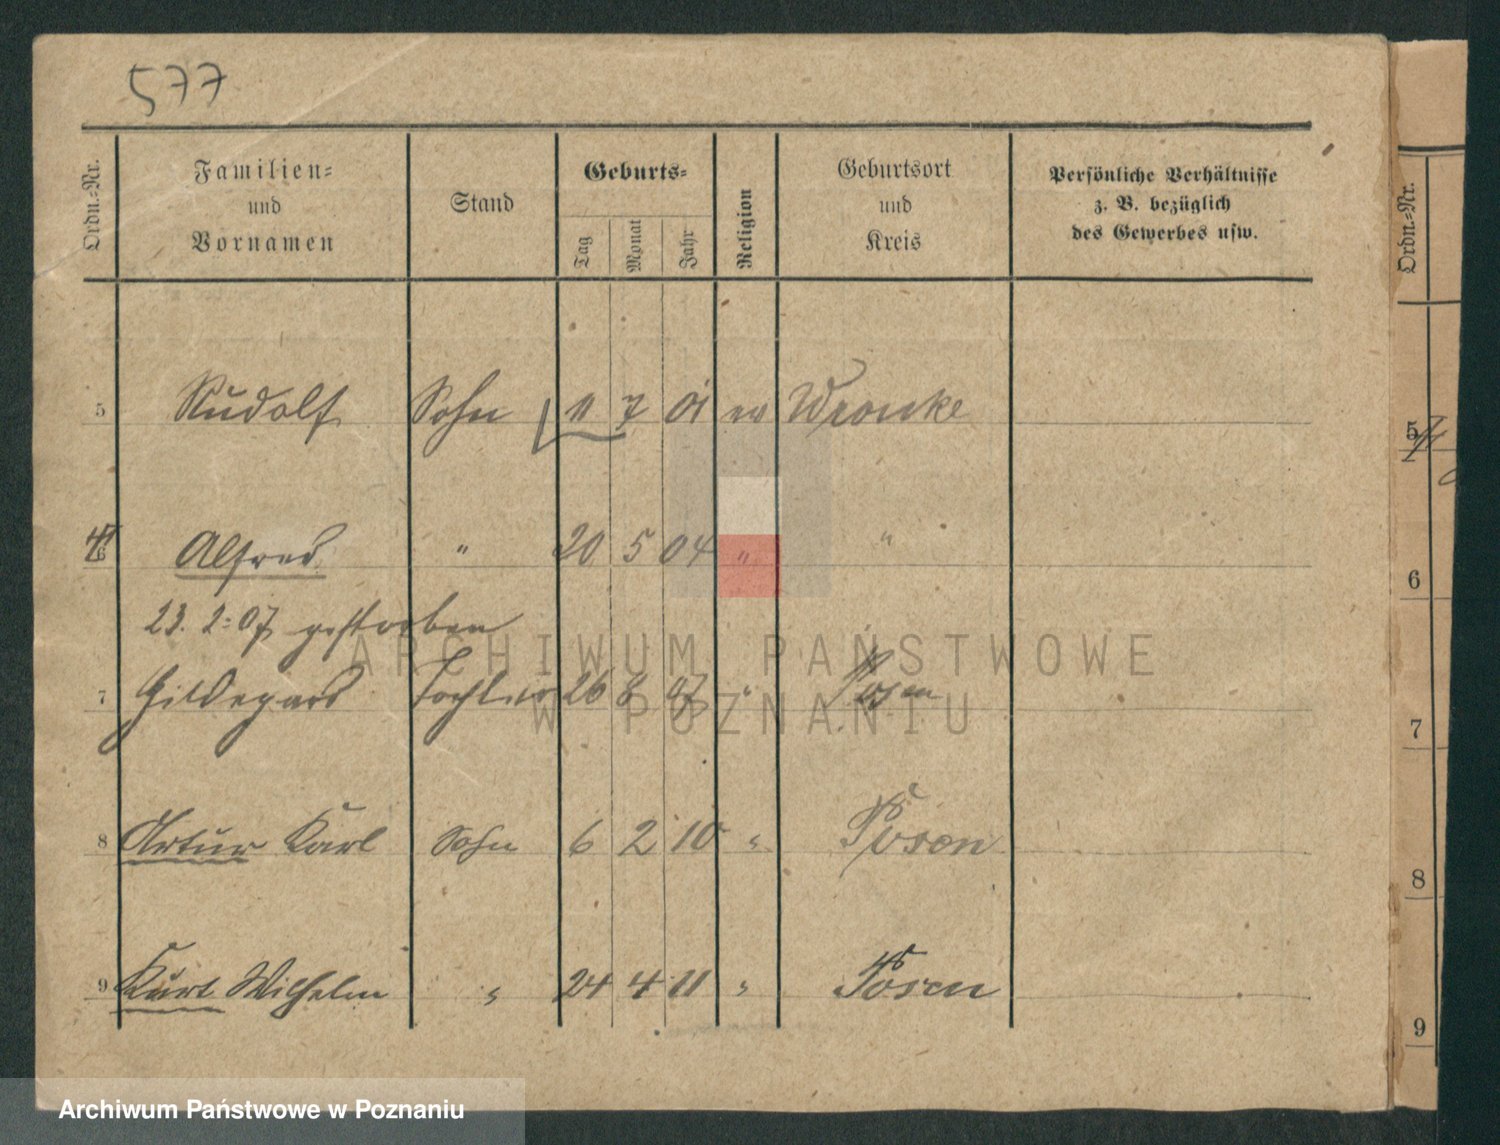 577
Ordn.-Nr.
Familien-
und
Vornamen
Stand
Geburts-
Tag
Monat
Jahr
Religion
Geburtsort
und
Kreis
Persönliche Verhältnisse
z. B. bezüglich
des Gewerbes usw.
Ordn.-Nr.
5 Rudolf Sohn 11 7 01 ev Wronke
5
6 Alfred " 20 5 04 " "
6
23. 2. 07 gestorben
ARCHIWUM PAŃSTWOWE
7 Hildegard Tochter 26 8 07 " Posen
W POZNANIU
7
8 Artur Karl Sohn 6 2 10 " Posen
8
9 Kurt Wilhelm " 24 4 11 " Posen
9
Archiwum Państwowe w Poznaniu